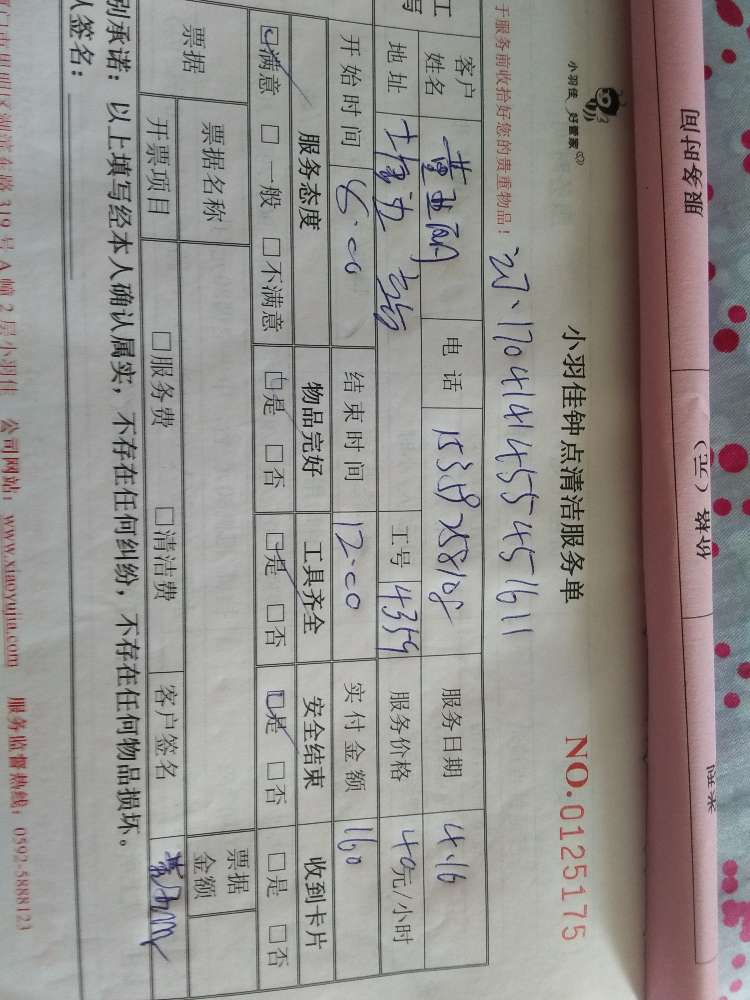 小羽佳 好管家
小羽佳钟点清洁服务单
NO.0125175
于服务前收拾好您的贵重物品!
客户姓名 董亚丽 电话 15359258108 服务日期 4.16
地址 工号 4359 服务价格 40元/小时
开始时间 8:00 结束时间 12:00 实付金额 160
服务态度 物品完好 工具齐全 安全结束 收到卡片
☑满意 □一般 □不满意 ☑是 □否 ☑是 □否 ☑是 □否 □是 □否
票据 票据名称 票据金额
开票项目 □服务费 □清洁费 客户签名
别承诺:以上填写经本人确认属实,不存在任何纠纷,不存在任何物品损坏。
人签名:
门市思明区湖滨东路319号A幢2层小羽佳 公司网站:www.xiaoyujia.com 服务监督热线:0592-5888123
服务时间